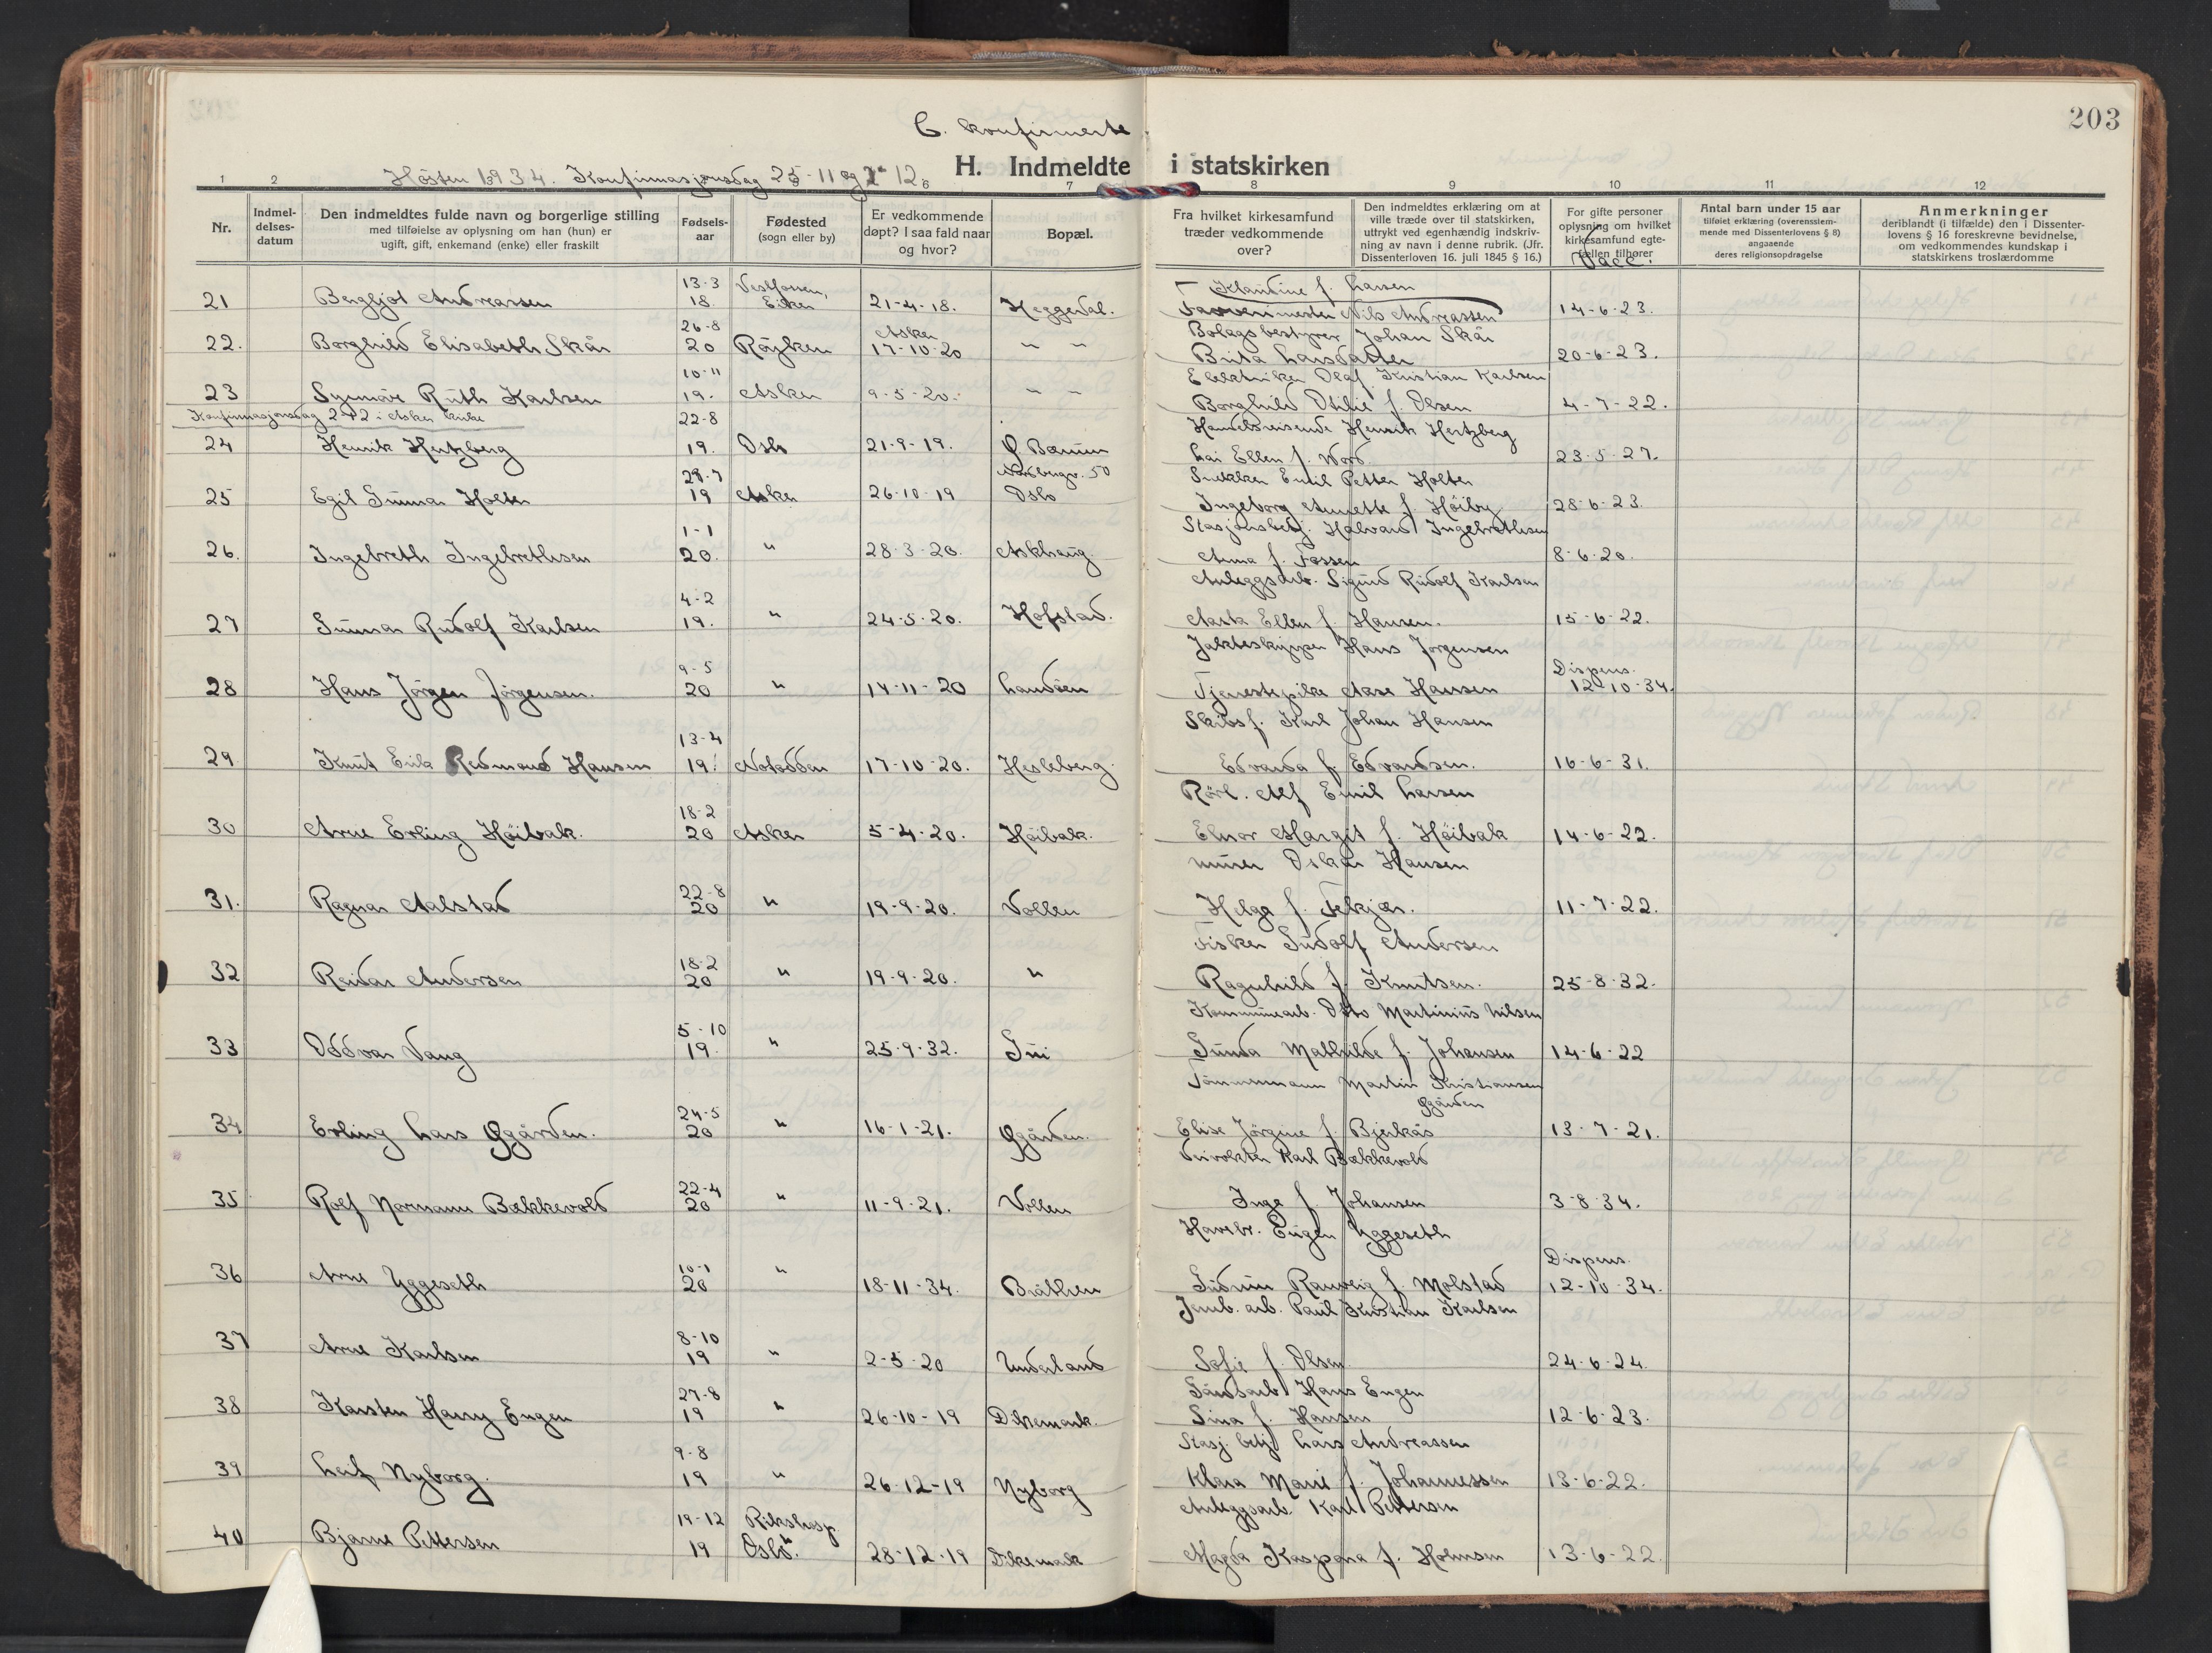 203
C. konfirmerte
H. Indmeldte i statskirken
Høsten 1934. Konfirmasjonsdag 25-11 og 2-12
1 2 6 7 8 9 10 11 12
Nr.
Indmel-
delses-
datum
Den indmeldtes fulde navn og borgerlige stilling
med tilføielse av oplysning om han (hun) er
ugift, gift, enkemand (enke) eller fraskilt
Fødsels-
aar
Fødested
(sogn eller by)
Er vedkommende
døpt? I saa fald naar
og hvor?
Bopæl.
Fra hvilket kirkesamfund
træder vedkommende
over?
Den indmeldtes erklæring om at
ville træde over til statskirken,
uttrykt ved egenhændig indskriv-
ning av navn i denne rubrik. (Jfr.
Dissenterloven 16. juli 1845 § 16.)
For gifte personer
oplysning om hvilket
kirkesamfund egte-
fællen tilhører
Vacc.
Antal barn under 15 aar
tilføiet erklæring (overensstem-
mende med Dissenterlovens § 8)
angaaende
deres religionsopdragelse
Anmerkninger
deriblandt (i tilfælde) den i Dissenter-
lovens § 16 foreskrevne bevidnelse,
om vedkommendes kundskap i
statskirkens troslærdomme
13-3 Vestfossen, Klaudine f. Larsen
21 Bergljot Andreassen 18. Eiker 21-4-18. Heggedal. Farvermester Nils Andreassen 14-6-23.
26-8 Asker Bolagsbestyrer Johan Skår
22. Borghild Elisabeth Skår 20 Røyken 17-10-20 " " Brita Larsdatter 20-6-23.
10-11 Elektriker Olaf Kristian Karlsen
23 Synnøve Ruth Karlsen 19. Asker 9-5-20. " " Borghild Otilie f. Olsen 4-7-22.
Konfirmasjonsdag 2-12 i Asker kirke
22-8 Handelsreisende Henrik Hertzberg
24 Henrik Hertzberg 19. Oslo 21-9-19. Ø Bærum Lai Ellen f. Word 23-5-27.
29-7 Nordbergv. 50 Snekker Emil Petter Holter
25 Egil Gunnar Holter 19 Asker 26-10-19 Oslo Ingeborg Annette f. Høiby 28-6-23.
1-1 Stasjonsbetj. Halvard Ingebrethsen
26. Ingebreth Ingebrethsen 20. " 28-3-20. Askhaug. Anna f. Fossen 8-6-20.
4-2 Anleggsarb. Sigurd Rudolf Karlsen
27 Gunnar Rudolf Karlsen 19. " 24-5-20. Hofstad. Aasta Ellen f. Hansen. 15-6-22.
9-5 Jakteskipper Hans Jørgensen Dispens.
28 Hans Jørgen Jørgensen. 20 " 14-11-20 Landøen Tjenestepike Aase Hansen 12-10-34.
13-4 Skibsf. Karl Johan Hansen
29 Knut Erik Redmond Hansen 19. Notodden 17-10-20. Hesleberg. Edvarda f. Edvardsen. 16-6-31.
18-2 Rørl. Alf Emil Larsen
30 Arne Erling Høibak. 20 Asker 5-4-20. Høibak. Elnor Margit f. Høibak 14-6-22.
22-8 murer Oskar Hansen
31. Ragnar Aalstad 20 " 19-9-20. Vollen Helga f. Fekjær. 11-7-22.
18-2 Fisker Gudolf Andersen
32 Reidar Andersen 20 " 19-9-20. " Ragnhild f. Knutsen. 25-8-32.
5-10 Kommunearb. Otto Martinius Nilsen
33 Oddvar Vang 19. " 25-9-32. Gui Gunda Mathilde f. Johansen 14-6-22
24-5 Tømmermann Martin Kristiansen Øgården
34 Erling Lars Øgården. 20 " 16-1-21. Øgården. Elise Jørgine f. Bjerkås 13-7-21.
22-4 Drivokter Karl Bækkevold
35 Rolf Normann Bækkevold 20 " 11-9-21. Vollen Inga f. Johansen 3-8-34.
10-1 Havebr. Eugen Yggeseth Dispens.
36 Arne Yggeseth 20 " 18-11-34. Bråthen Gudrun Ranveig f. Molstad 12-10-34.
8-10 Jernb. arb. Paul Kristian Karlsen
37 Arne Karlsen 19 " 2-5-20 Underland Sofie f. Olsen 24-6-24.
27-8 Gårdsarb. Hans Engen
38 Karsten Harry Engen 19 " 26-10-19 Dikemark. Sina f. Hansen 12-6-23.
9-8 Stasj. betj. Lars Andreassen
39 Leif Nyborg. 19 " 26-12-19 Nyborg Klara Marie f. Johannessen 13-6-22.
19-12 Rikshosp. Anleggsarb. Karl Pettersen
40 Bjarne Pettersen 19 Oslo. 28-12-19 Dikemark Magda Kaspara f. Holmsen 13-6-22.